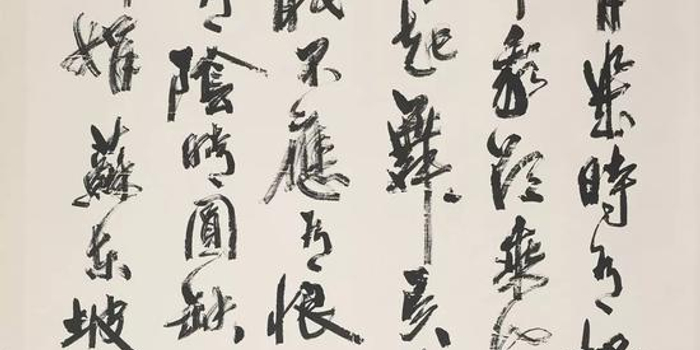 幾時有
我欲乘
起舞弄
不應有恨
有陰晴圓缺
娟蘇東坡